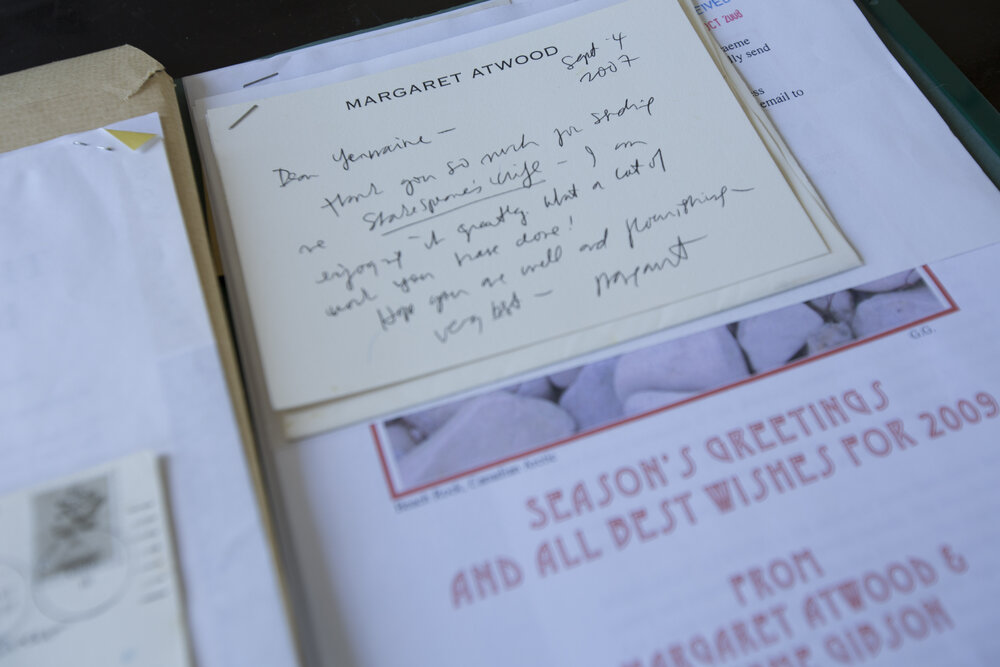 EIVED
OCT 2008
aeme
lly send
ss
email to
MARGARET ATWOOD
Sept 4
2007
Dear Germaine —
Thank you so much for sending
me Shakespeare's Wife – I am
enjoying it greatly. What a lot of
work you have done!
Hope you are well and flourishing –
very best – Margaret
G.G.
Beach Rock, Canadian Arctic
SEASON'S GREETINGS
AND ALL BEST WISHES FOR 2009
FROM
MARGARET ATWOOD &
ME GIBSON